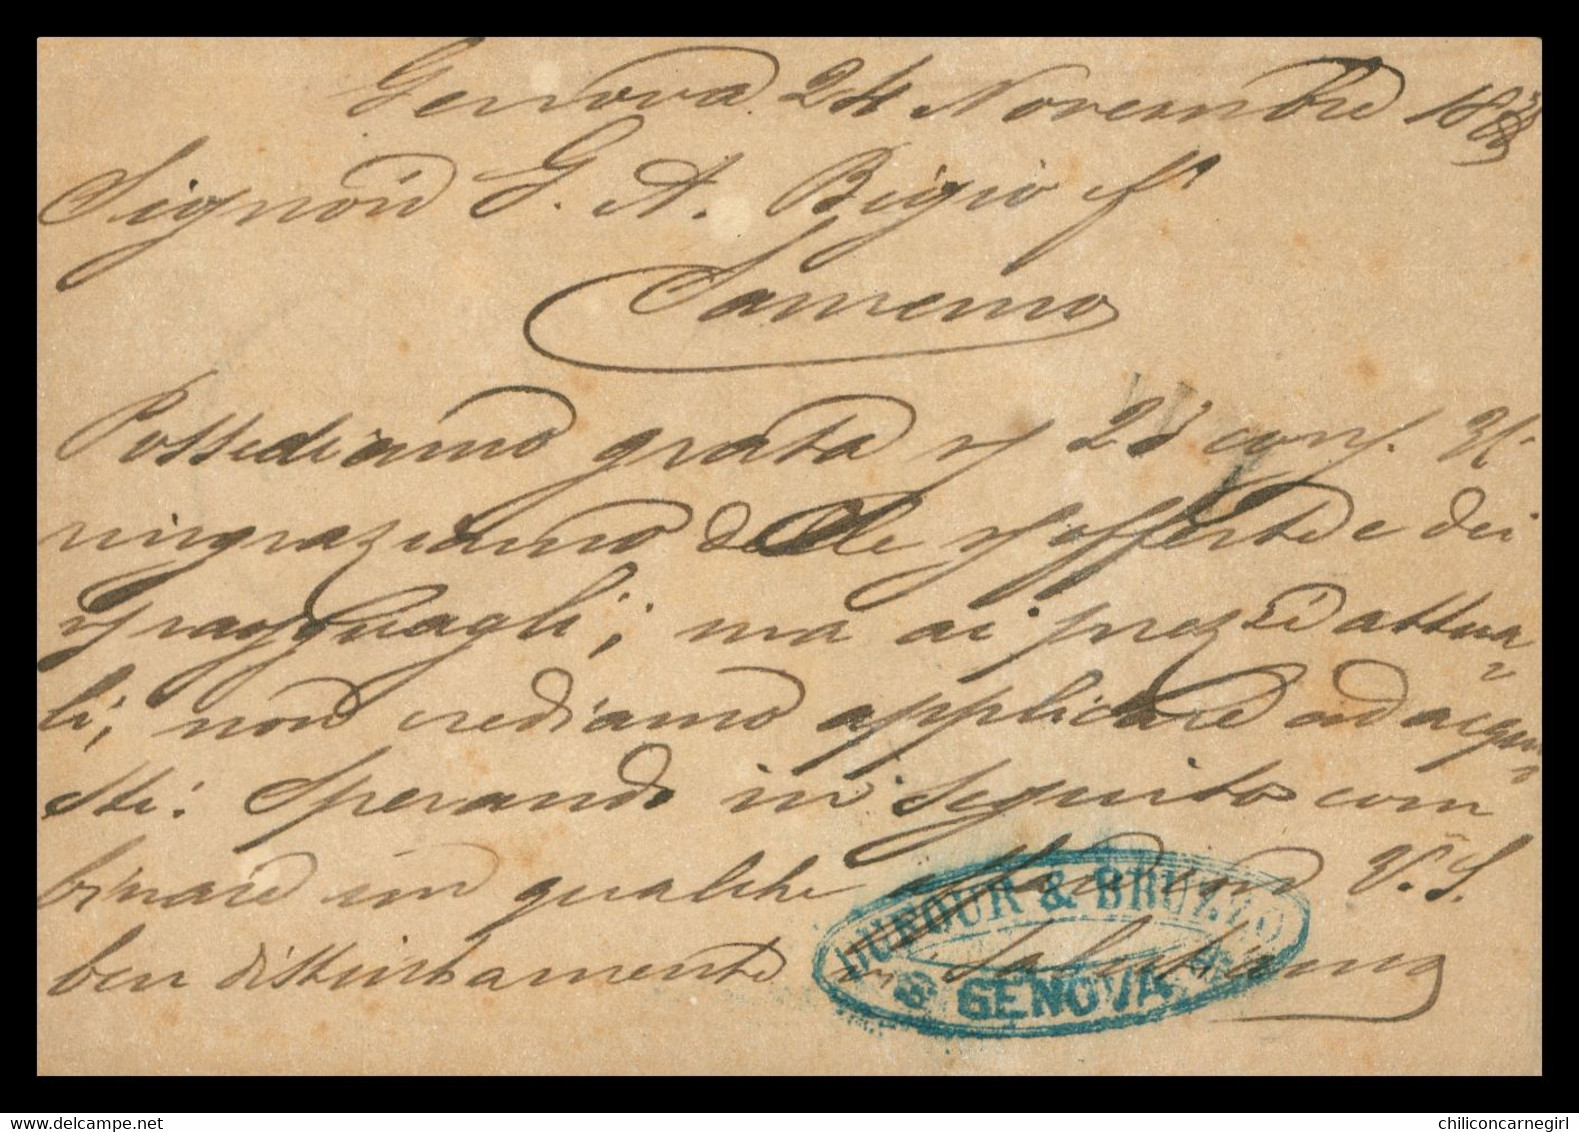 Genova 24 Novembre 188
Signori G. A. Bigio f.
Sanremo
Possediamo grata 23 corr.
ringraziamo delle offerte e dei
ragguagli; ma ai prezzi attua
li, non crediamo applicare ad acqui
sti: Sperando in seguito com
binare in qualche affare con V. S.
ben distintamente vi Salutiamo
DUFOUR & BRUZZO
GENOVA
delcampe.net
chiliconcarnegirl